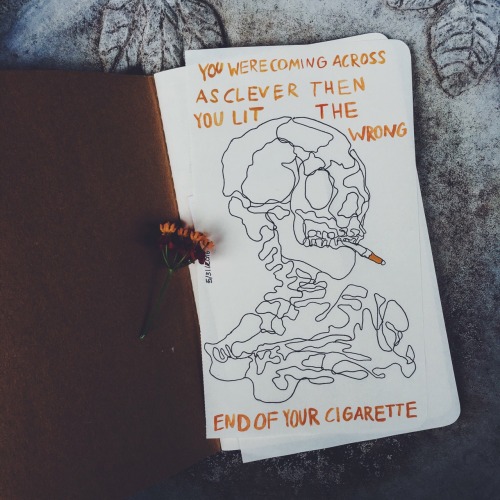 YOU WERE COMING ACROSS
AS CLEVER THEN
YOU LIT THE
WRONG
END OF YOUR CIGARETTE